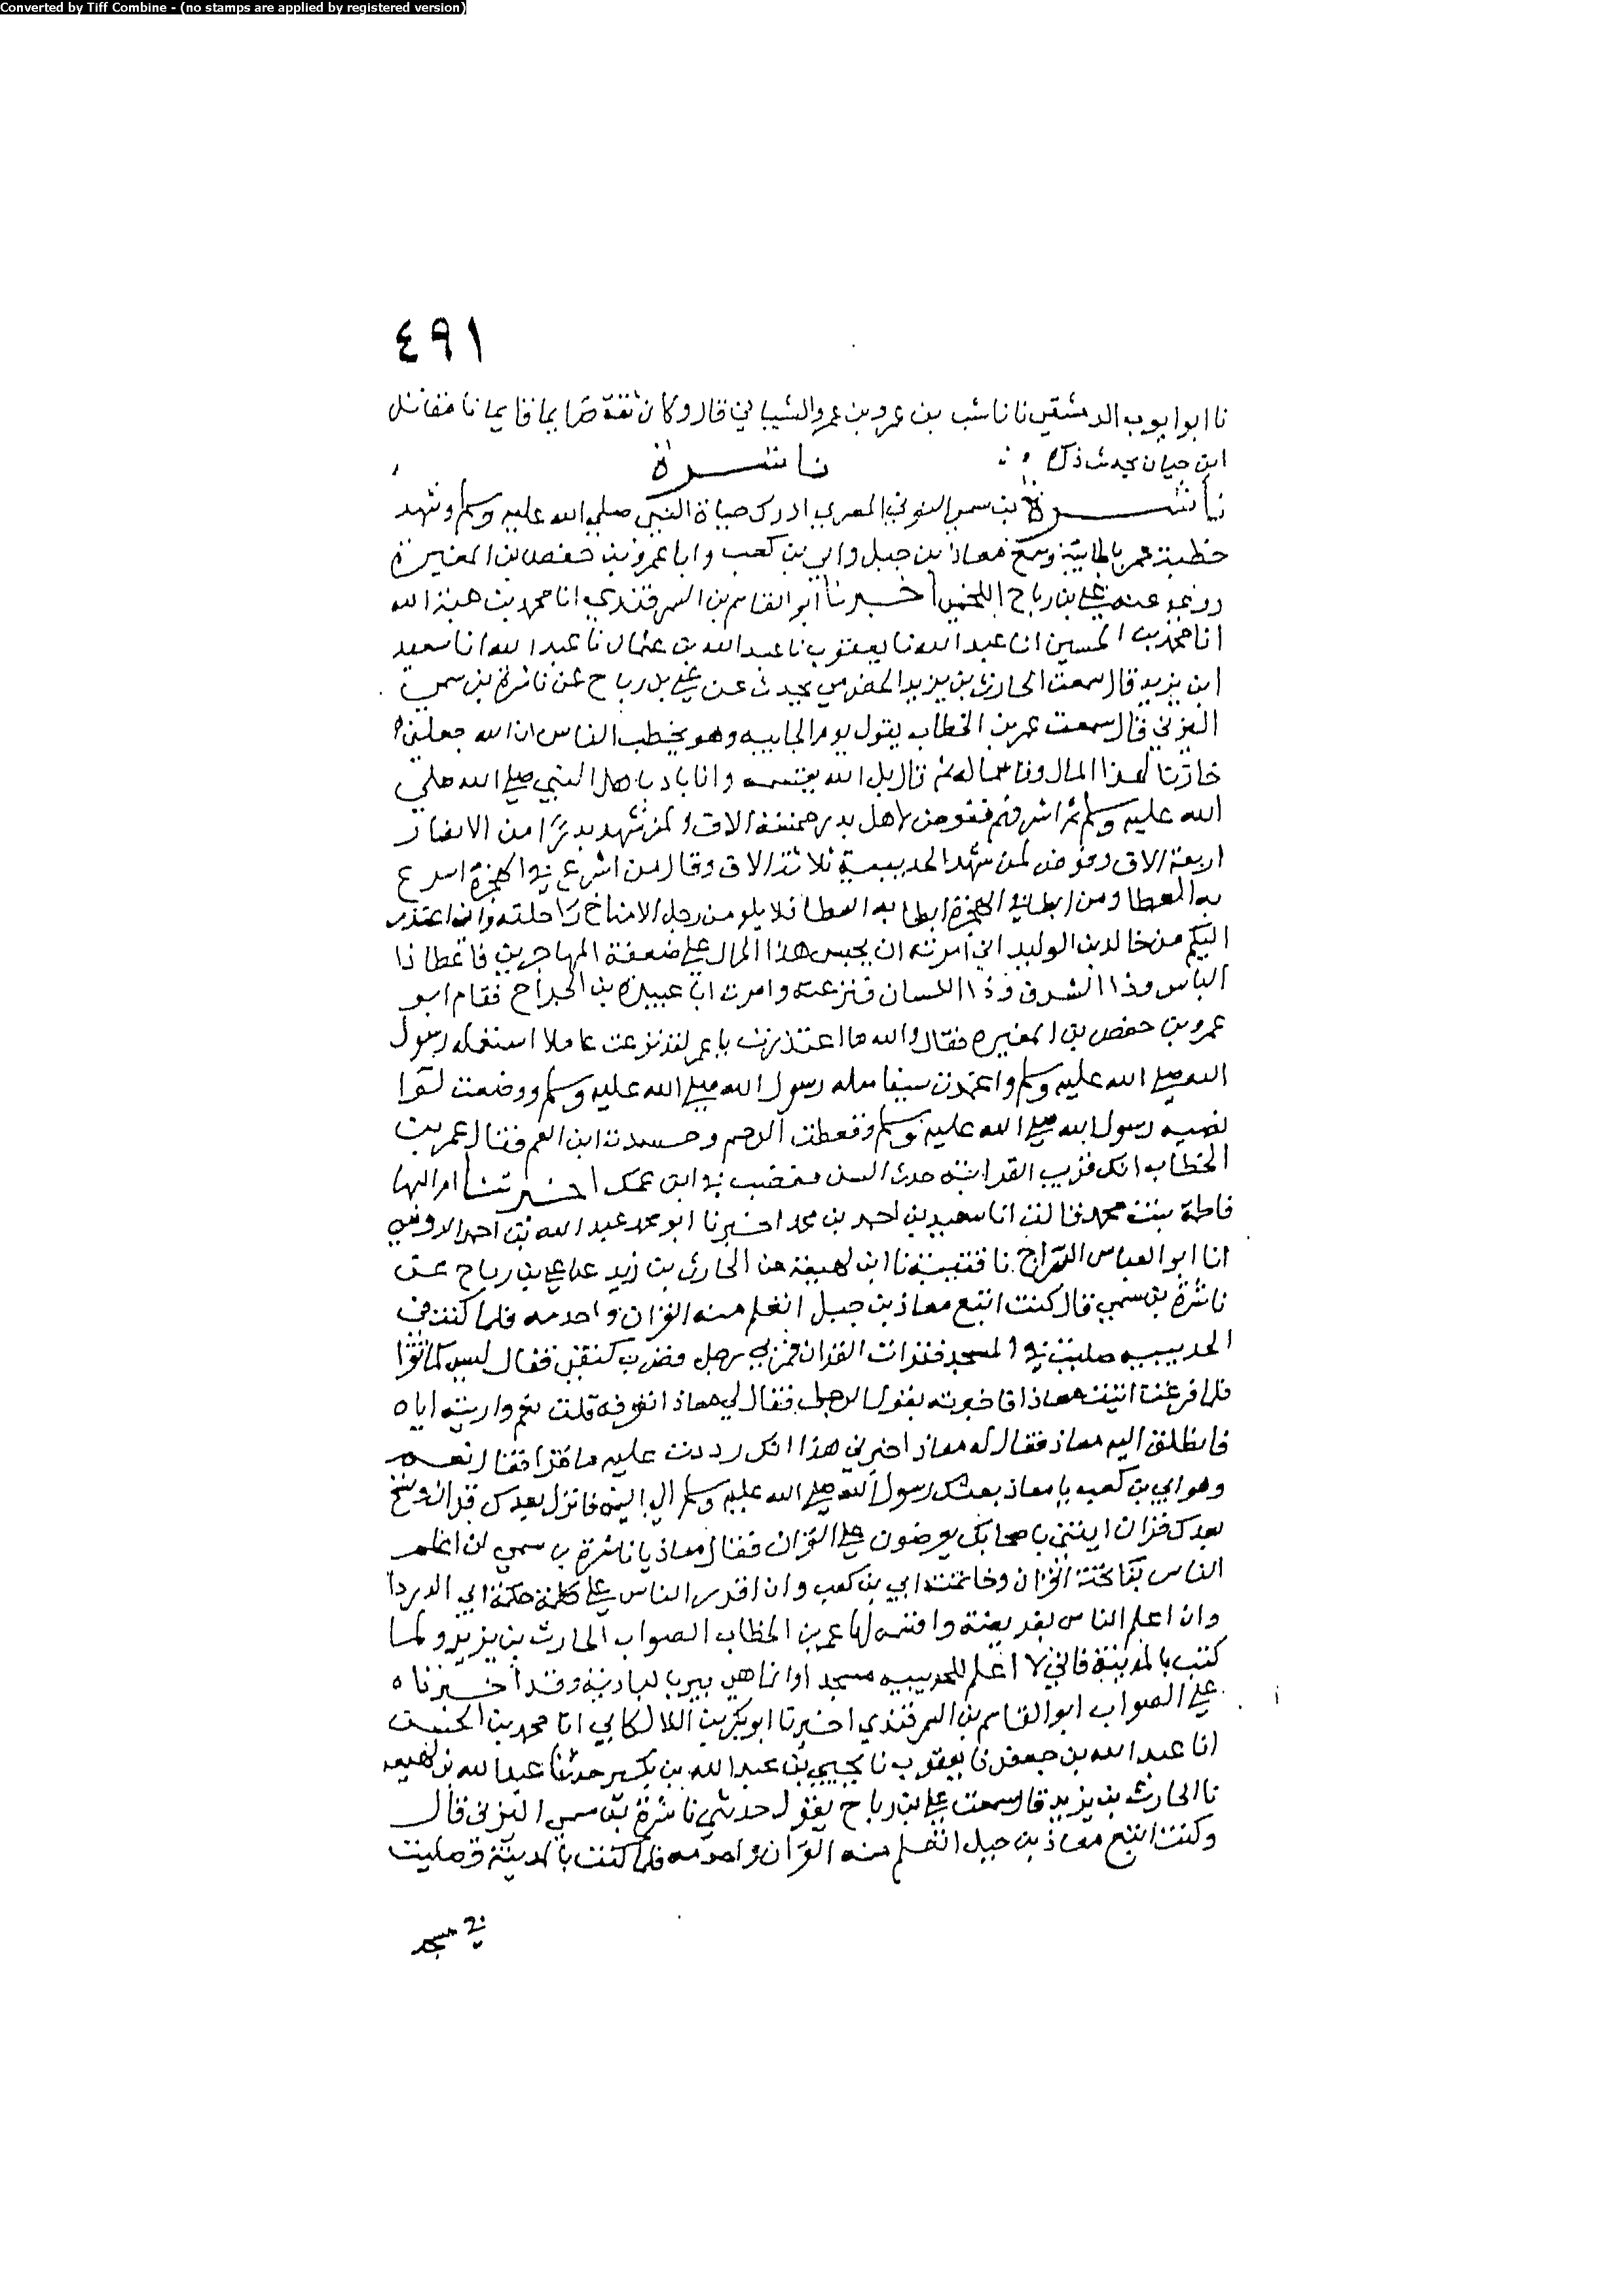 Converted by Tiff Combine - (no stamps are applied by registered version)
٤٩١
نا ابو ايوب الدمشقي نا ناشب بن عمرو بن عمرو الشيباني قال وكان ثقة صايما قايما نا مقاتل
ابن حيان بحديث ذكره
ناشرة
ناشرة بن سمي اليزني المصري ادرك حياة النبي صلى الله عليه وسلم وشهد
خطبة عمر بالجابية وسمع معاذ بن جبل وابي بن كعب وابا عمرو بن حفص بن المغيرة
روى عنه علي بن رباح اللخمي اخبرنا ابو القاسم بن السمرقندي انا محمد بن هبة الله
انا محمد بن الحسين انا عبد الله نا يعقوب نا عبد الله بن عثمان نا عبد الله انا سعيد
ابن يزيد قال سمعت الحارث بن يزيد الحضرمي يحدث عن علي بن رباح عن ناشرة بن سمي
اليزني قال سمعت عمر بن الخطاب يقول يوم الجابيه وهو يخطب الناس ان الله جعلني
خازنا لهذا المال وقاسما له ثم قال بل الله يقسمه وانا باد باهل النبي صلى الله صلى
الله عليه وسلم ثم اشرفهم ففرض لاهل بدر خمسة الاف ولمن شهد بدرا من الانصار
اربعة الاف وفرض لمن شهد الحديبية ثلاثة الاف وقال من اسرع في الهجرة اسرع
به العطا ومن ابطا في الهجرة ابطا به العطا فلا يلومن رجل الا مناخ راحلته واني اعتذر
اليكم من خالد بن الوليد اني امرته ان يحبس هذا المال على ضعفة المهاجرين فاعطا ذا
الباس وذا الشرف وذا اللسان فنزعته وامرت ابا عبيدة بن الجراح فقام ابو
عمرو بن حفص بن المغيرة فقال والله ما اعتذرت يا عمر لقد نزعت عاملا استعمله رسول
الله صلى الله عليه وسلم واغمدت سيفا سله رسول الله صلى الله عليه وسلم ووضعت لوا
نصبه رسول الله صلى الله عليه وسلم وقطعت الرحم وحسدت ابن العم فقال عمر بن
الخطاب انك قريب القرابة حدث السن مغضب في ابن عمك اخبرتنا ام البها
فاطمة بنت محمد قالت انا سعيد بن احمد بن محمد اخبرنا ابو محمد عبد الله بن احمد الرومي
انا ابو العباس السراج نا قتيبة نا ابن لهيعة عن الحارث بن زيد عن علي بن رباح عن
ناشرة بن سمي قال كنت اتبع معاذ بن جبل اتعلم منه القران واخدمه فلما كنت في
الحديبيه صليت في المسجد فقرات القران فمر بي رجل وضرب كتفي فقال ليس كما تقرا
فلما فرغت اتيت معاذا فاخبرته بقول الرجل فقال لي معاذ اتعرفه قلت نعم واريته اياه
فانطلق اليه معاذ فقال له معاذ اخبرني هذا انك رددت عليه ما قرا فقال نعم
وهو ابي بن كعب يا معاذ بعثك رسول الله صلى الله عليه وسلم الى اليمن فانزل بعدك قران ونسخ
بعدك قران ايتني باصحابك يعرضون علي القران فقال معاذ يا ناشرة بن سمي ان اعلم
الناس بفاتحة القران وخاتمته ابي بن كعب وان اقدر الناس على كلمة حكمة ابي الدردا
وان اعلم الناس بفريضة واقسمه لها عمر بن الخطاب الصواب الحارث بن يزيد ولما
كنت بالمدينة فاني لا اعلم للحديبيه مسجدا وانما هي بير بالبادية وقد اخبرناه
على الصواب ابو القاسم بن السمرقندي اخبرنا ابو بكر بن اللالكايي انا محمد بن الحسين
انا عبد الله بن جعفر نا يعقوب نا يحيى بن عبد الله بن بكير حدثنا عبد الله بن لهيعه
نا الحارث بن يزيد قال سمعت علي بن رباح يقول حدثني ناشرة بن سمي اليزني قال
وكنت اتبع معاذ بن جبل اتعلم منه القران واخدمه فلما كنت بالمدينة صليت
في مسجد